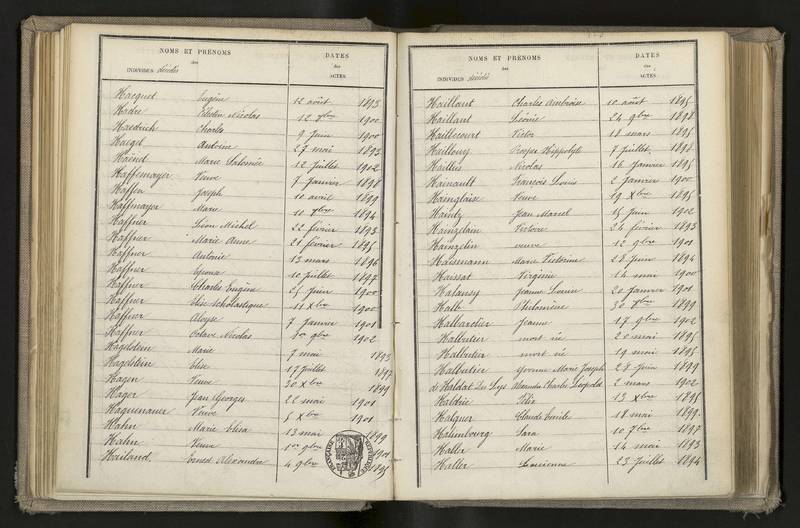 NOMS ET PRÉNOMS
des
INDIVIDUS décédés
DATES
des
ACTES
Hacquet Eugène 12 août 1893
Hadre Nicolas 12 9bre 1900
Haedrich Charles 9 Juin 1900
Haegel Antoine 27 mai 1893
Haenel Marie Salomée 12 Juillet 1902
Haffemayer Veuve 7 Janvier 1898
Haffen Joseph 10 avril 1899
Haffmayer Marie 10 7bre 1894
Haffner Léon Michel 22 février 1893
Haffner Marie Anne 21 février 1895
Haffner Antoine 13 mars 1896
Haffner Epouse 10 Juillet 1897
Haffner Charles Eugène 25 Juin 1900
Haffner Elise Scholastique 11 Xbre 1900
Haffner Aloyse 7 Janvier 1901
Haffner Octave Nicolas 9bre 1902
Hagelstein Marie 7 mai 1893
Hagelstein Elise 17 Juillet 1897
Hagen Veuve 30 Xbre 1899
Hager Jean Georges 22 mai 1901
Haguenauer Veuve 5 Xbre 1901
Hahn Marie Elisa 13 mai 1899
Hahn Veuve 1er 9bre 1901
Hailand Ernest Alexandre 4 9bre 1895
NOMS ET PRÉNOMS
des
INDIVIDUS décédés
DATES
des
ACTES
Haillant Charles Ambroise 10 août 1895
Haillant Léonie 24 9bre 1898
Haillecourt Victor 18 mars 1895
Prosper Hippolyte 7 Juillet 1898
Nicolas 16 Janvier 1895
Hainault François Louis 2 Janvier 1900
Hainglaise Veuve 19 Xbre 1895
Haintz Jean Marcel 15 Juin 1902
Hainzelin Victoire 24 février 1893
Hainzelin veuve 12 9bre 1901
Haismann Marie Victorine 28 Juin 1894
Haissat Virginie 14 mai 1900
Halansy Jeanne 20 Janvier 1901
Halb Philomène 30 7bre 1899
Halbardier Jeanne 17 9bre 1902
Halbutier mort né 20 mai 1895
Halbutier mort né 19 mai 1895
Halbutier Yvonne Marie Joseph 27 Juin 1899
de Haldat du Lys Charles Léopold 2 mars 1902
Félix 13 Xbre 1895
Halguer Claude Emile 18 mai 1899
Halimbourg Sara 10 7bre 1897
Haller Marie 14 mai 1893
Haller Lucienne 23 Juillet 1894